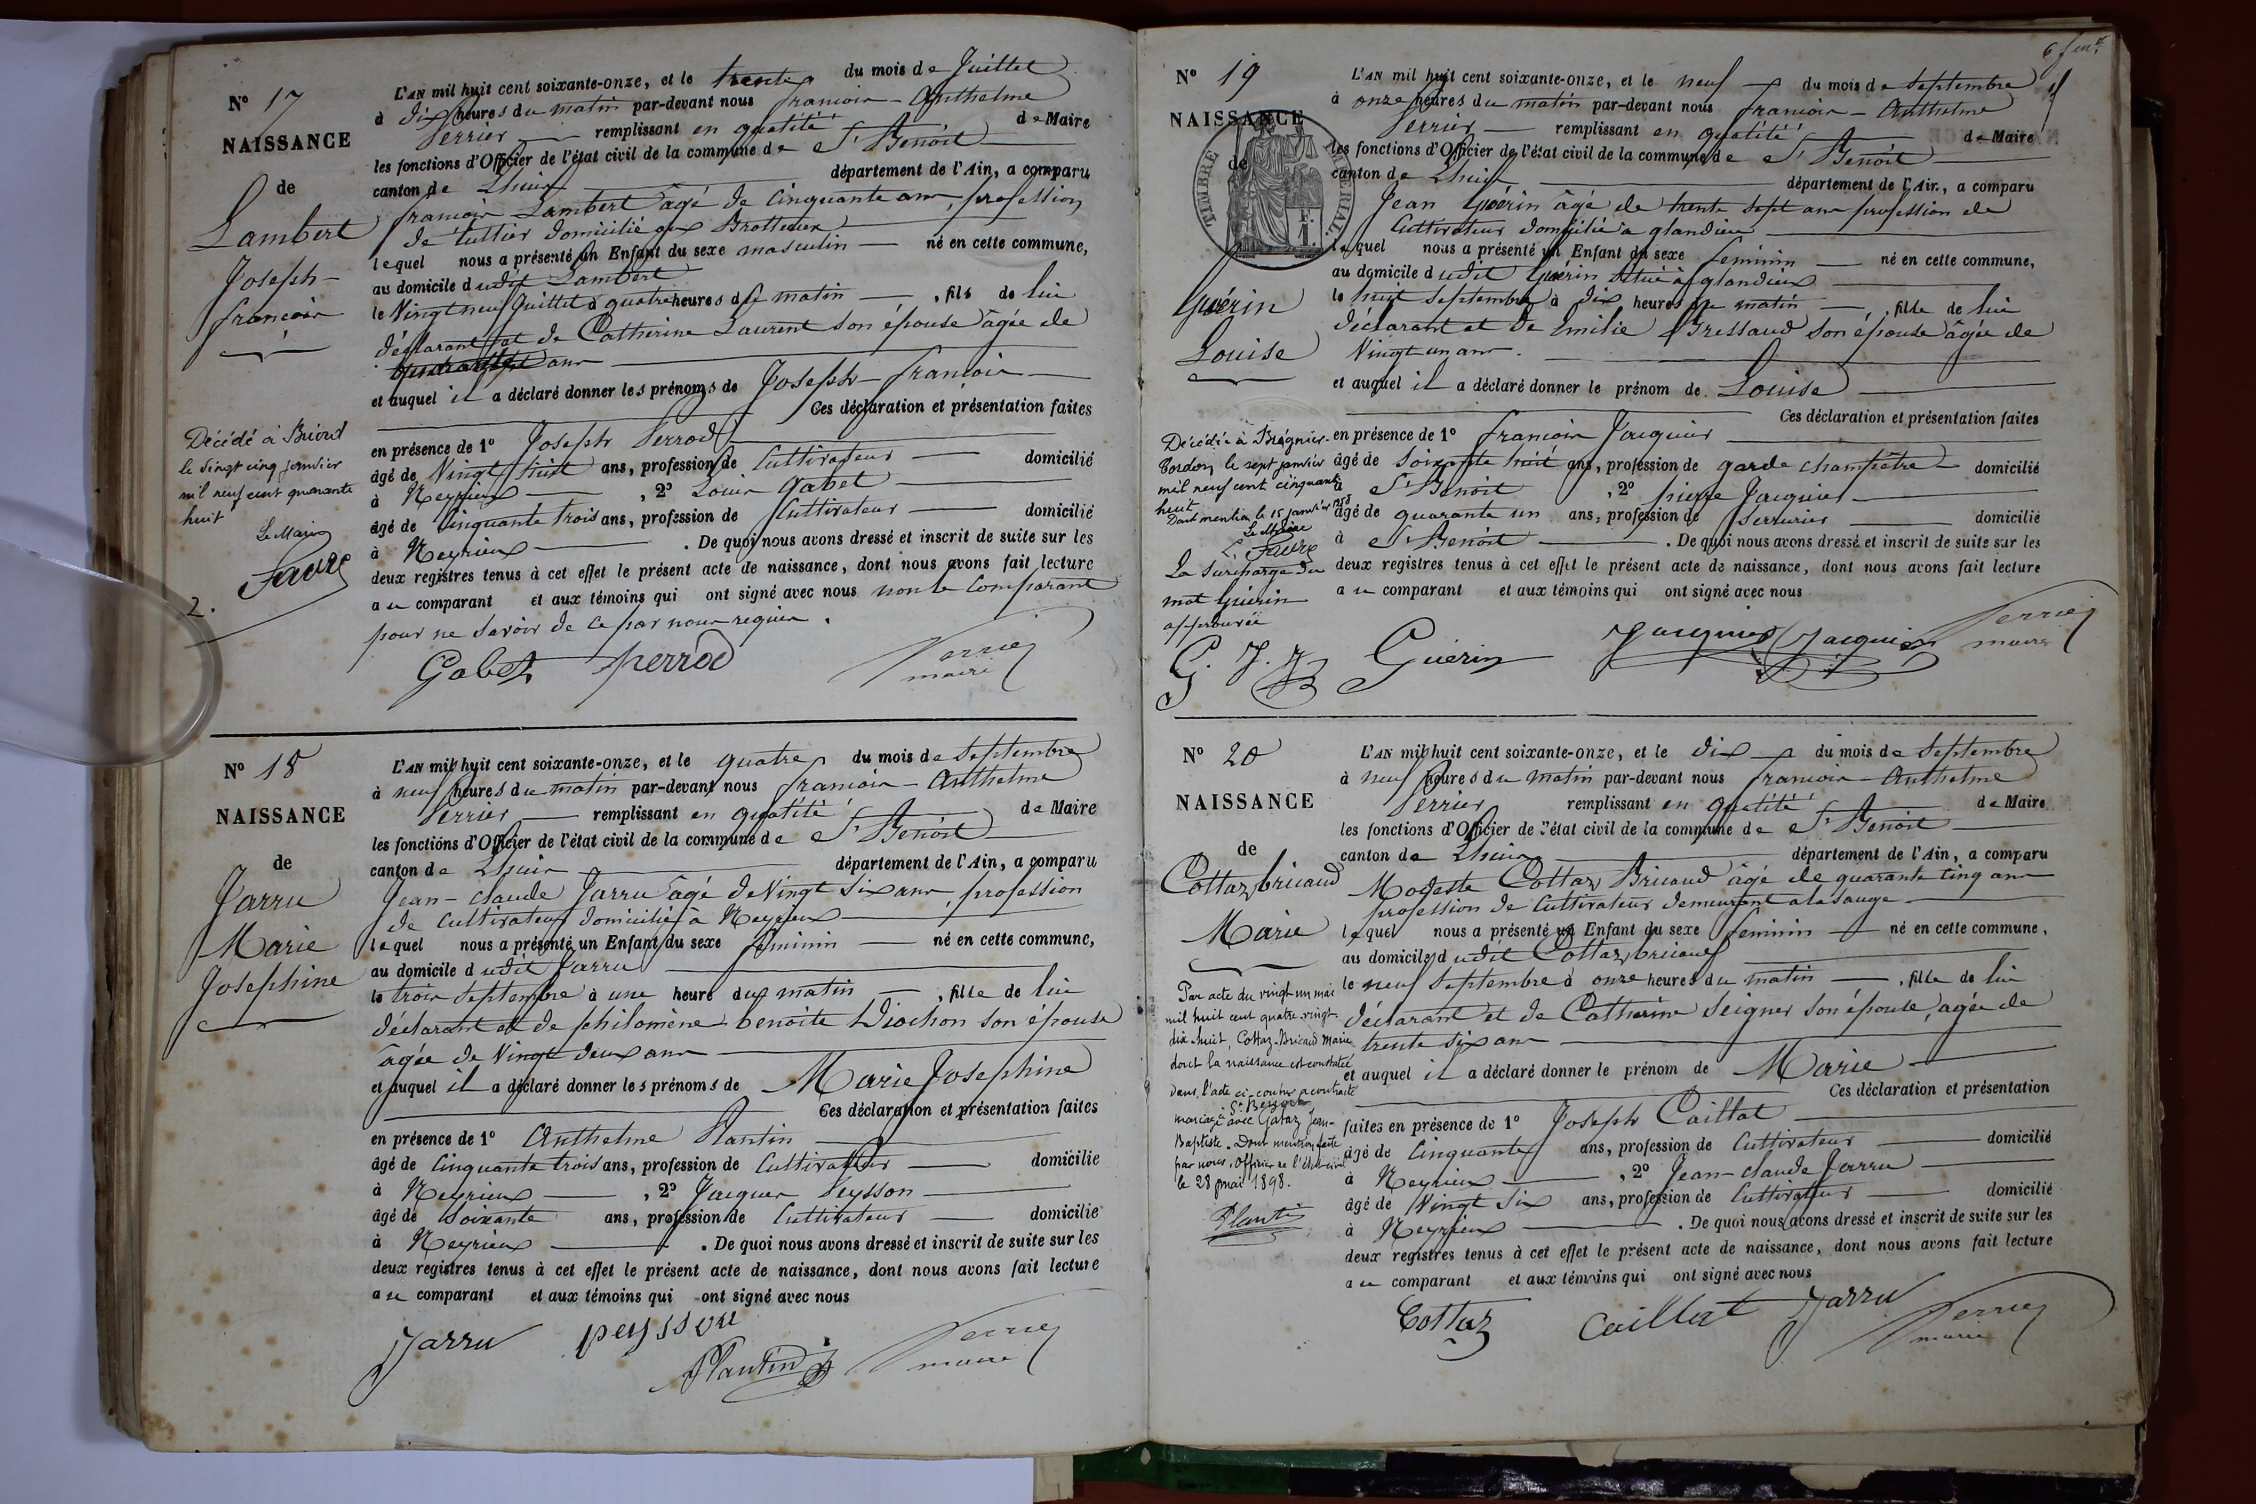 N° 17
NAISSANCE
de
Lambert
Joseph-
françois
Décédé à Briord
le vingt cinq janvier
mil neuf cent quarante
huit
Le Maire
Favre
2.
L'AN mil huit cent soixante-onze, et le trente du mois de Juillet
à dix heures du matin par-devant nous françois-Anthelme
Perrier remplissant en qualité de Maire
les fonctions d'Officier de l'état civil de la commune de St Benoit
canton de Lhuis département de l'Ain, a comparu
françois Lambert âgé de cinquante ans, profession
de domicilié aux Brotteaux
lequel nous a présenté un Enfant du sexe masculin né en cette commune,
au domicile dudit Lambert
le Vingt neuf Juillet à quatre heures du matin, fils de lui
déclarant et de Catherine Laurent son épouse âgée de
ans
et auquel il a déclaré donner les prénoms de Joseph-françois
Ces déclaration et présentation faites
en présence de 1° Joseph Perrod
âgé de Vingt huit ans, profession de Cultivateur domicilié
à Neyrieux, 2° Louis Gabet
âgé de Cinquante trois ans, profession de Cultivateur domicilié
à Neyrieux. De quoi nous avons dressé et inscrit de suite sur les
deux registres tenus à cet effet le présent acte de naissance, dont nous avons fait lecture
au comparant et aux témoins qui ont signé avec nous non le Comparant
pour ne savoir de ce par nous requis.
Gabet perrod Perrier
maire
N° 18
NAISSANCE
de
Jarru
Marie
Josephine
L'AN mil huit cent soixante-onze, et le quatre du mois de Septembre
à neuf heures du matin par-devant nous françois-Anthelme
Perrier remplissant en qualité de Maire
les fonctions d'Officier de l'état civil de la commune de St Benoit
canton de Lhuis département de l'Ain, a comparu
Jean-claude Jarru âgé de Vingt Six ans, profession
de Cultivateur domicilié à Neyrieux
lequel nous a présenté un Enfant du sexe féminin né en cette commune,
au domicile dudit Jarru
le trois Septembre à une heure du matin, fille de lui
déclarant et de philomène benoite Diochon son épouse
âgée de Vingt deux ans
et auquel il a déclaré donner les prénoms de Marie Josephine
Ces déclaration et présentation faites
en présence de 1° Anthelme Plantin
âgé de Cinquante trois ans, profession de Cultivateur domicilié
à Neyrieux, 2° Jacques Peysson
âgé de soixante ans, profession de Cultivateur domicilié
à Neyrieux. De quoi nous avons dressé et inscrit de suite sur les
deux registres tenus à cet effet le présent acte de naissance, dont nous avons fait lecture
au comparant et aux témoins qui ont signé avec nous
Jarru peysson
Plantin Perrier
maire
6
N° 19
NAISSANCE
de
TIMBRE IMPERIAL
Guérin
Louise
Décédée à Brégnier-
Cordon, le sept janvier
mil neuf cent cinquante
huit
Dont mention le 15 janvier 1958
Le Maire
Favre
La Surcharge du
mot Guérin
approuvée
G. J. J.
L'AN mil huit cent soixante-onze, et le neuf du mois de Septembre
à onze heures du matin par-devant nous françois-Anthelme
Perrier remplissant en qualité de Maire
les fonctions d'Officier de l'état civil de la commune de St Benoit
canton de Lhuis département de l'Ain, a comparu
Jean Guérin âgé de trente sept ans profession de
Cultivateur domicilié à glandieu
lequel nous a présenté un Enfant du sexe féminin né en cette commune,
au domicile dudit Guérin situé à glandieu
le huit Septembre à dix heures du matin, fille de lui
déclarant et de Emilie Bressaud son épouse âgée de
Vingt un ans.
et auquel il a déclaré donner le prénom de Louise
Ces déclaration et présentation faites
en présence de 1° françois Jacquier
âgé de Soixante huit ans, profession de garde champêtre domicilié
à St Benoit, 2° pierre Jacquier
âgé de quarante un ans, profession de Serrurier domicilié
à St Benoit. De quoi nous avons dressé et inscrit de suite sur les
deux registres tenus à cet effet le présent acte de naissance, dont nous avons fait lecture
au comparant et aux témoins qui ont signé avec nous
Guérin Jacquier Jacquier Perrier
maire
N° 20
NAISSANCE
de
Cottaz bricaud
Marie
Par acte du vingt un mai
mil huit cent quatre vingt
dix huit, Cottaz-Bricaud Marie
dont la naissance est constatée
dans l'acte ci-contre a contracté
mariage à St Benoit
avec Garaz Jean-
Baptiste. Dont mention faite
par nous, Officier de l'état civil
le 28 mai 1898.
Plantin
L'AN mil huit cent soixante-onze, et le dix du mois de Septembre
à neuf heures du matin par-devant nous françois-Anthelme
Perrier remplissant en qualité de Maire
les fonctions d'Officier de l'état civil de la commune de St Benoit
canton de Lhuis département de l'Ain, a comparu
Modeste Cottaz Bricaud âgé de quarante cinq ans
profession de Cultivateur demeurant a la Sauge
lequel nous a présenté un Enfant du sexe féminin né en cette commune,
au domicile dudit Cottaz bricaud
le neuf Septembre à onze heures du matin, fille de lui
déclarant et de Catherine Seigner son épouse, agée de
trente six ans
et auquel il a déclaré donner le prénom de Marie
Ces déclaration et présentation
faites en présence de 1° Joseph Caillat
âgé de Cinquante ans, profession de Cultivateur domicilié
à Neyrieux, 2° Jean-claude Jarru
âgé de Vingt Six ans, profession de Cultivateur domicilié
à Neyrieux. De quoi nous avons dressé et inscrit de suite sur les
deux registres tenus à cet effet le présent acte de naissance, dont nous avons fait lecture
au comparant et aux témoins qui ont signé avec nous
Cottaz Caillat Jarru Perrier
maire